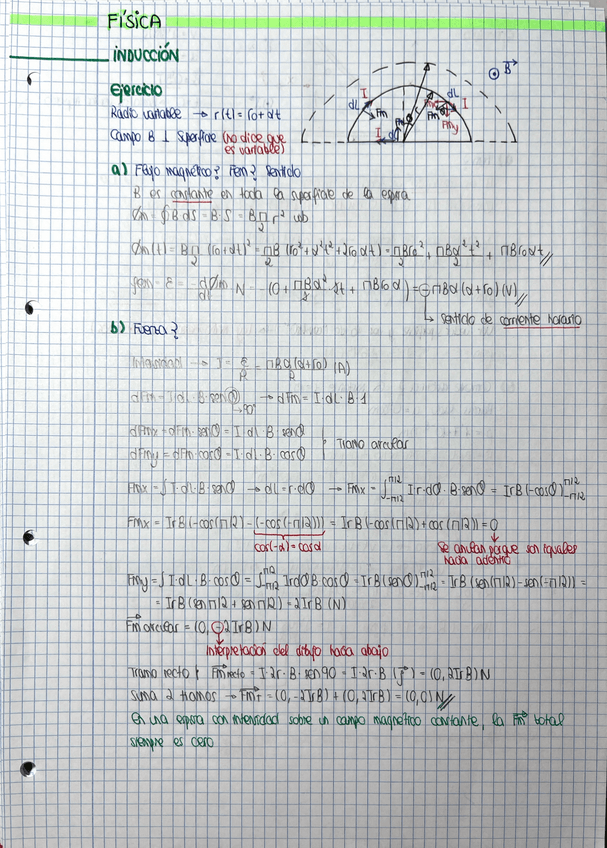 FÍSICA
INDUCCIÓN
Ejercicio
Radio variable → r(t) = r0 + αt
Campo B ⊥ Superficie (no dice que
es variable)
B
I dL Fm I dL Fm I
a) Flujo magnético? Fem? Sentido
B es constante en toda la superficie de la espira
Øm = ∮B dS = B·S = B π/2 r² wb
Øm(t) = B π/2 (r0+αt)² = πB/2 (r0² + α²t² + 2r0αt) = πBr0²/2 + πBα²t²/2 + πBr0αt //
fem = ε = -dØm/dt N = -(0 + πBα²/2 · 2t + πBr0α) = -πBα(αt+r0) (V) //
↳ sentido de corriente horario
b) Fuerza?
Intensidad → I = ε/R = πBα(αt+r0)/R (A)
dFm = I·dL·B·senθ → dFm = I·dL·B·1
→90°
dFmx = dFm·senθ = I·dL·B·senθ
dFmy = dFm·cosθ = I·dL·B·cosθ
Tramo circular
Fmx = ∫I·dL·B·senθ → dL = r·dθ → Fmx = ∫-π/2 π/2 I r·dθ·B·senθ = IrB(-cosθ)-π/2 π/2
Fmx = IrB(-cos(π/2) - (-cos(-π/2))) = IrB(-cos(π/2) + cos(π/2)) = 0
cos(-α) = cosα
Se anulan porque son iguales
hacia adentro
Fmy = ∫I·dL·B·cosθ = ∫-π/2 π/2 I r dθ B cosθ = IrB(senθ)-π/2 π/2 = IrB(sen(π/2) - sen(-π/2)) =
= IrB(sen π/2 + sen π/2) = 2IrB (N)
Fm circular = (0, -2IrB) N
Interpretación del dibujo hacia abajo
Tramo recto Fm recto = I·2r·B·sen90 = I·2r·B (j) = (0, 2IrB) N
Suma 2 tramos → FmT = (0, -2IrB) + (0, 2IrB) = (0,0) N //
En una espira con intensidad sobre un campo magnético constante, la Fm total
siempre es cero